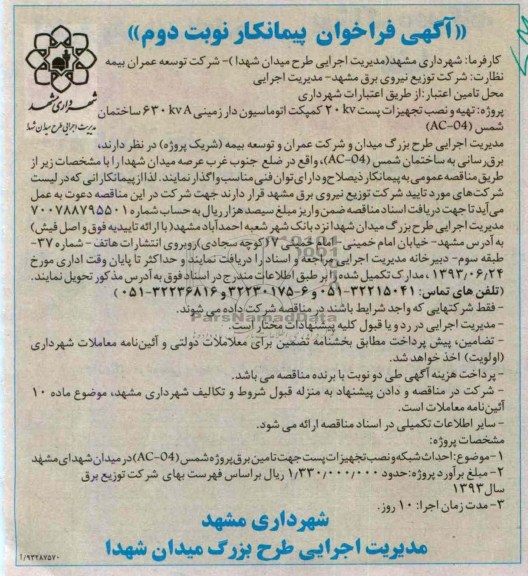 «آگهی فراخوان پیمانکار نوبت دوم»
کارفرما: شهرداری مشهد(مدیریت اجرایی طرح میدان شهدا)- شرکت توسعه عمران بیمه
نظارت: شرکت توزیع نیروی برق مشهد- مدیریت اجرایی
محل تامین اعتبار: از طریق اعتبارات شهرداری
پروژه: تهیه و نصب تجهیزات پست ۲۰ kv کمپکت اتوماسیون دار زمینی ۶۳۰ kv A ساختمان
شمس (AC-04)
شهرداری مشهد
مدیریت اجرایی طرح میدان شهدا
مدیریت اجرایی طرح بزرگ میدان و شرکت عمران و توسعه بیمه (شریک پروژه) در نظر دارند،
برق‌رسانی به ساختمان شمس (AC-04)، واقع در ضلع جنوب غرب عرصه میدان شهدا را با مشخصات زیر از
طریق مناقصه عمومی به پیمانکار ذیصلاح و دارای توان فنی مناسب واگذار نمایند. لذا از پیمانکارانی که در لیست
شرکت‌های مورد تایید شرکت توزیع نیروی برق مشهد قرار دارند جهت شرکت در این مناقصه دعوت به عمل
می‌آید تا جهت دریافت اسناد مناقصه ضمن واریز مبلغ سیصد هزار ریال به حساب شماره ۷۰۰۷۸۸۷۹۵۵۰۱
مدیریت اجرایی طرح بزرگ میدان شهدا نزد بانک شهر شعبه احمدآباد مشهد( با ارائه تاییدیه فوق و اصل فیش)
به آدرس مشهد- خیابان امام خمینی - امام خمینی ۱۷(کوچه سجادی) روبروی انتشارات هاتف - شماره ۳۷-
طبقه سوم- دبیرخانه مدیریت اجرایی مراجعه و اسناد را دریافت نمایند و حداکثر تا پایان وقت اداری مورخ
۱۳۹۳/۰۶/۲۴ ، مدارک تکمیل شده را بر طبق اطلاعات مندرج در اسناد فوق به آدرس مذکور تحویل نمایند.
(تلفن های تماس: ۳۲۲۱۵۰۴۱-۰۵۱ و ۶-۳۲۲۳۰۱۷۵ و ۳۲۲۳۶۸۱۶-۰۵۱)
- فقط شرکتهایی که واجد شرایط باشند در مناقصه شرکت داده می شوند.
- مدیریت اجرایی در رد و یا قبول کلیه پیشنهادات مختار است.
ParsNamadData
- تضامین، پیش پرداخت مطابق بخشنامه تضمین برای معاملات دولتی و آئین‌نامه معاملات شهرداری
(اولویت) اخذ خواهد شد.
- پرداخت هزینه آگهی طی دو نوبت با برنده مناقصه می باشد.
- شرکت در مناقصه و دادن پیشنهاد به منزله قبول شروط و تکالیف شهرداری مشهد، موضوع ماده ۱۰
آئین‌نامه معاملات است.
- سایر اطلاعات تکمیلی در اسناد مناقصه ارائه می شود.
مشخصات پروژه:
۱-موضوع: احداث شبکه و نصب تجهیزات پست جهت تامین برق پروژه شمس (AC-04) در میدان شهدای مشهد
۲- مبلغ برآورد پروژه: حدود ۱/۳۳۰/۰۰۰/۰۰۰ ریال براساس فهرست بهای شرکت توزیع برق
سال ۱۳۹۳
۳- مدت زمان اجرا: ۱۰ روز.
شهرداری مشهد
مدیریت اجرایی طرح بزرگ میدان شهدا
۹۳۲۸۷۵۷۰/آ